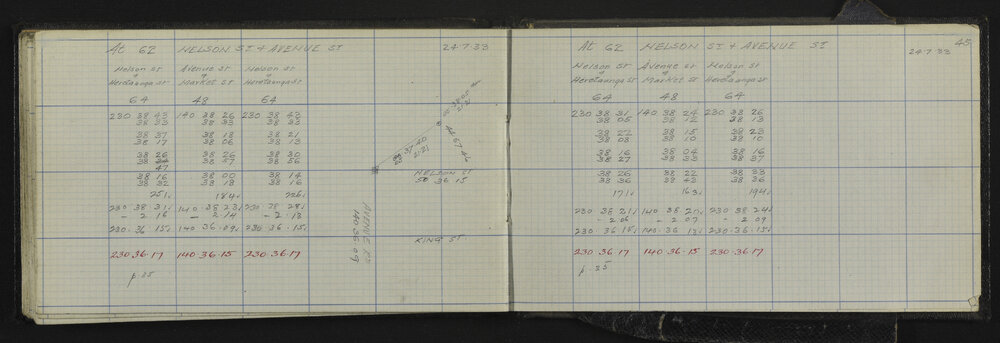 At 62 NELSON ST & AVENUE ST 24.7.33
Nelson St Avenue St Nelson St
& & &
Heretaunga St Market St Heretaunga St
64 48 64
230 38 43 140 38 26 230 38 43
38 33 38 33 38 33
38 37 38 18 38 21
38 17 38 06 38 13
38 26 38 26 38 30
38 57 38 56
47
38 16 38 00 38 14
38 32 38 18 38 16
251 184 226
230 38 31 140 38 23 230 38 28
- 2.16 - 2.14 - 2.13
230.36 15 140.36.09 230.36.15
230.36.17 140.36.15 230.36.17
p.25
NELSON ST
50 36.15
KING ST.
140 36 09
45
At 62 NELSON ST & AVENUE ST 24.7.33
Nelson St Avenue St Nelson St
& & &
Heretaunga St Market St Heretaunga St
64 48 64
230 38 31 140 38 24 230 38 26
38 05 38 12 38 13
38 22 38 15 38 23
38 08 38 10 38 10
38 16 38 04 38 16
38 27 38 33 38 37
38 26 38 22 38 33
38 36 38 43 38 36
171 163 194
230 38 21 140 38 20 230 38 24
- 2.06 - 2 07 - 2 09
230 36 15 140 36 13 230.36.15
230 36 17 140.36.15 230.36.17
p.25